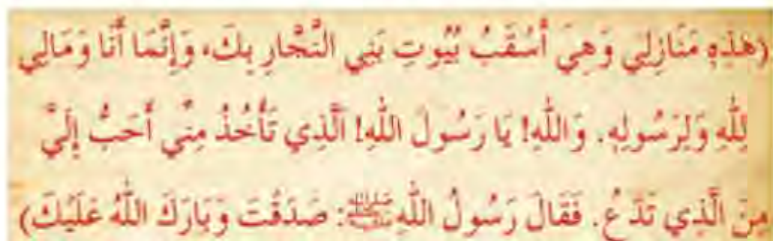 (هٰذِهٖ مَنَازِلِي وَهِيَ أَسْقَبُ بُيُوتِ بَنِي النَّجَّارِ بِكَ، وَإِنَّمَا أَنَا وَمَالِي
لِلّٰهِ وَلِرَسُولِهٖ. وَاللّٰهِ! يَا رَسُولَ اللّٰهِ! اَلَّذِي تَأْخُذُ مِنِّي أَحَبُّ إِلَيَّ
مِنَ الَّذِي تَدَعُ. فَقَالَ رَسُولُ اللّٰهِ ﷺ: صَدَقْتَ وَبَارَكَ اللّٰهُ عَلَيْكَ)